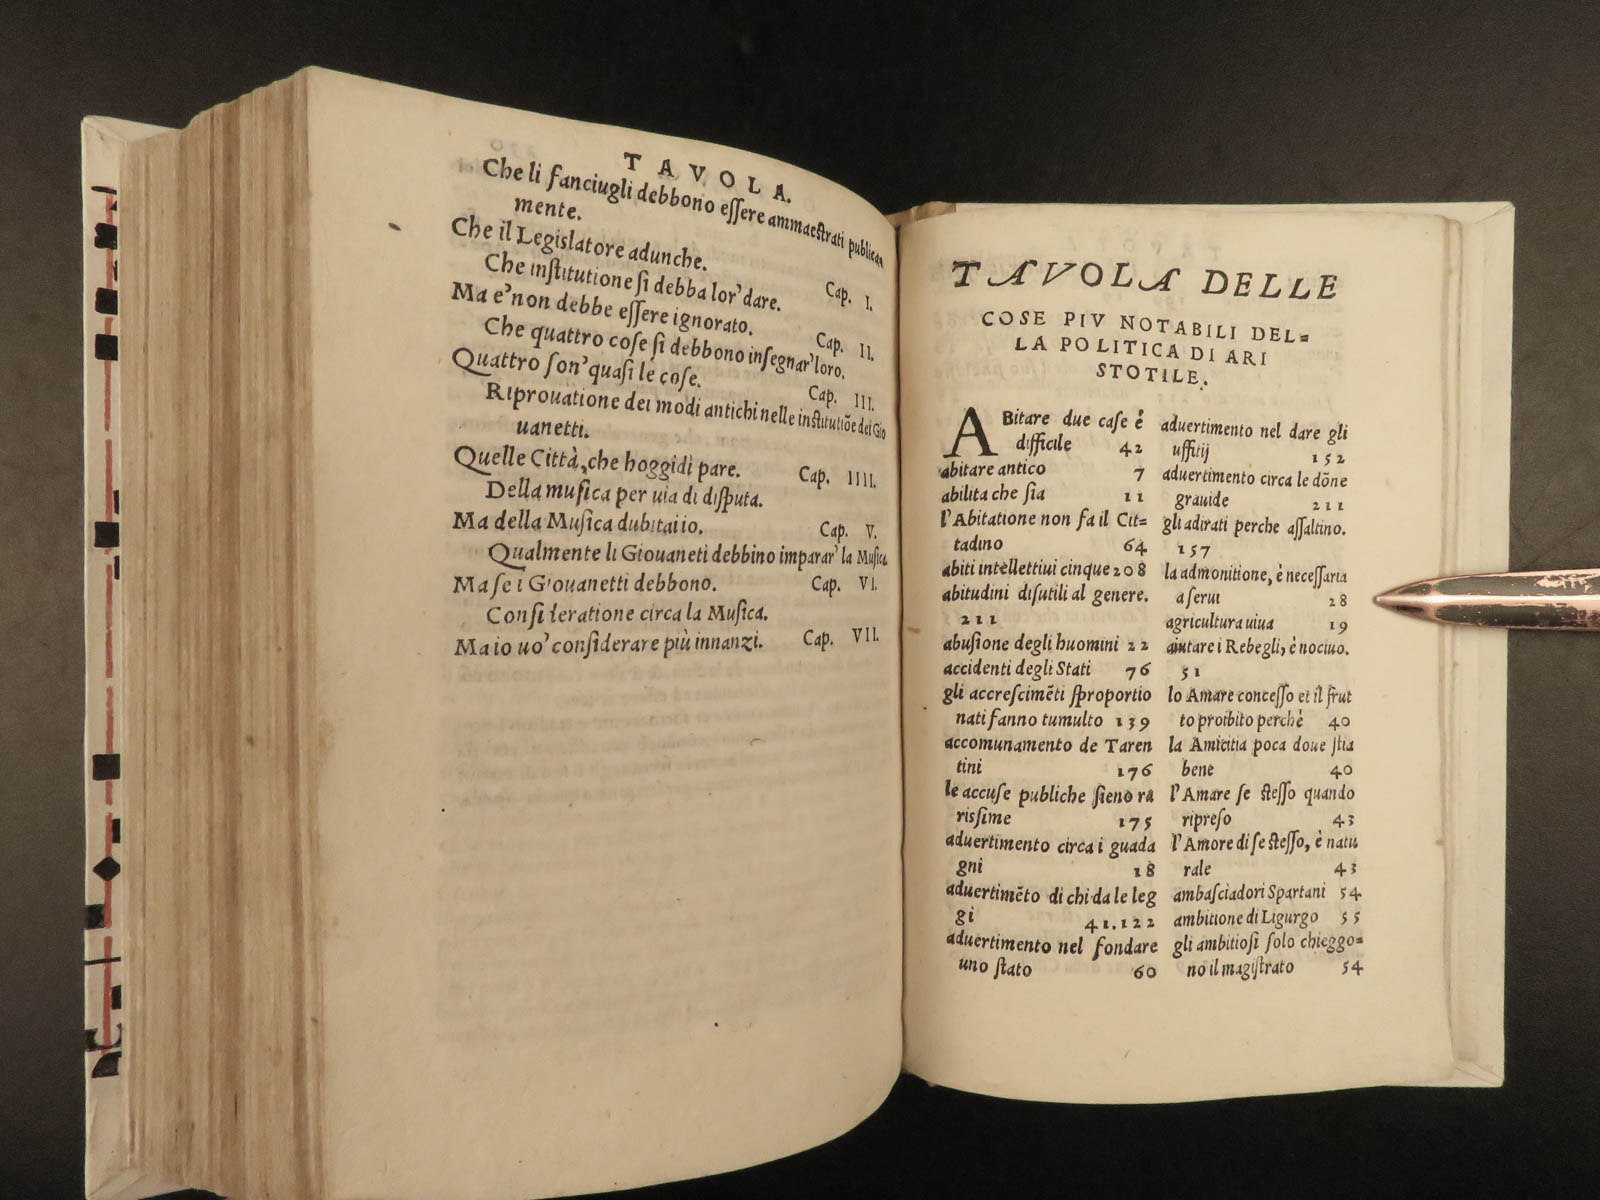 TAVOLA.
Che li fanciugli debbono eſſere ammaeſtrati publica
mente. Cap. I.
Che il Legislatore adunche.
Che inſtitutione ſi debba lor' dare.
Ma e' non debbe eſſere ignorato. Cap. II.
Che quattro coſe ſi debbono inſegnar' loro.
Quattro ſon' quaſi le coſe. Cap. III.
Riprouatione dei modi antichi nelle inſtitutiõe dei Gio
uanetti.
Quelle Città, che hoggidì pare. Cap. IIII.
Della muſica per uia di diſputa.
Ma della Muſica dubitai io. Cap. V.
Qualmente li Giouaneti debbino imparar' la Muſica.
Ma ſe i Giouanetti debbono. Cap. VI.
Conſideratione circa la Muſica.
Ma io uo' conſiderare più innanzi. Cap. VII.
TAVOLA DELLE
COSE PIV NOTABILI DEL=
LA POLITICA DI ARI
STOTILE.
ABitare due caſe é
difficile 42
abitare antico 7
abilita che ſia 11
l'Abitatione non fa il Cit=
tadino 64
abiti intellettiui cinque 208
abitudini diſutili al genere.
211
abuſione degli huomini 22
accidenti degli Stati 76
gli accreſcimẽti ſproportio
nati fanno tumulto 139
accomunamento de Taren
tini 176
le accuſe publiche ſieno ra
riſſime 175
aduertimento circa i guada
gni 18
aduertimẽto di chi da le leg
gi 41.122
aduertimento nel fondare
uno ſtato 60
aduertimento nel dare gli
uffitij 152
aduertimento circa le dõne
grauide 211
gli adirati perche aſſaltino.
157
la admonitione, è neceſſaria
a ſerui 28
agricultura uiua 19
aiutare i Rebegli, è nociuo.
51
lo Amare conceſſo et il frut
to proibito perchè 40
la Amicitia poca doue ſtia
bene 40
l'Amare ſe ſteſſo quando
ripreſo 43
l'Amore di ſe ſteſſo, è natu
rale 43
ambaſciadori Spartani 54
ambitione di Ligurgo 55
gli ambitioſi ſolo chieggo=
no il magiſtrato 54